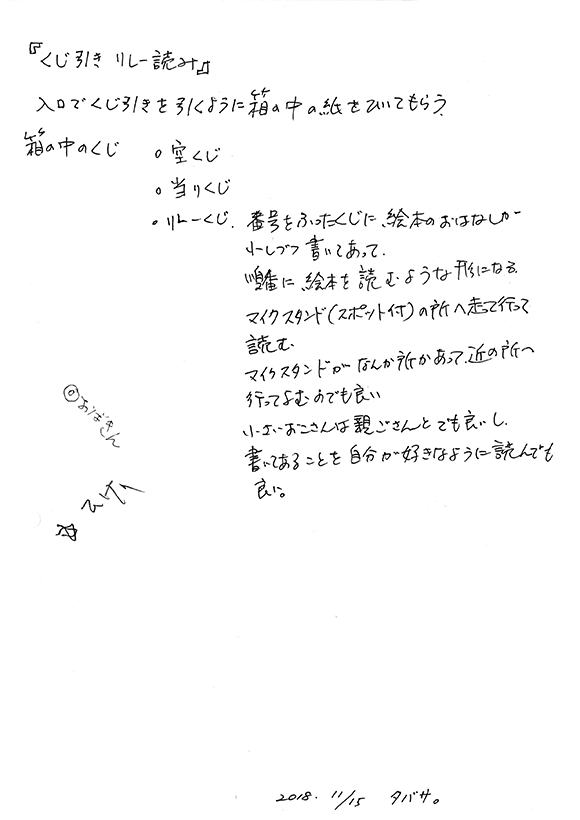 『くじ引き リレー読み』
入口でくじ引きを引くように箱の中の紙をひいてもらう。
箱の中のくじ
○ 空くじ
○ 当りくじ
○ リレーくじ. 番号をふったくじに、絵本のおはなしが
少しづつ書いてあって.
順番に、絵本を読むような形になる.
マイクスタンド(スポット付)の所へ走って行って
読む.
マイクスタンドがなんか所かあって、近の所へ
行ってよむのでも良い
小さいおこさんは親ごさんとでも良いし.
書いてあることを自分が好きなように読んでも
良い。
◎おばきん
☆
2018. 11/15 タバサ。